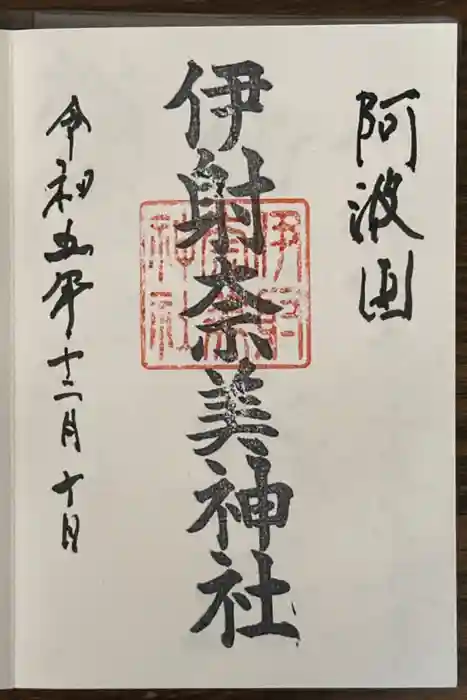 阿波国
伊射奈美神社
伊射
神社
令和五年十二月十日